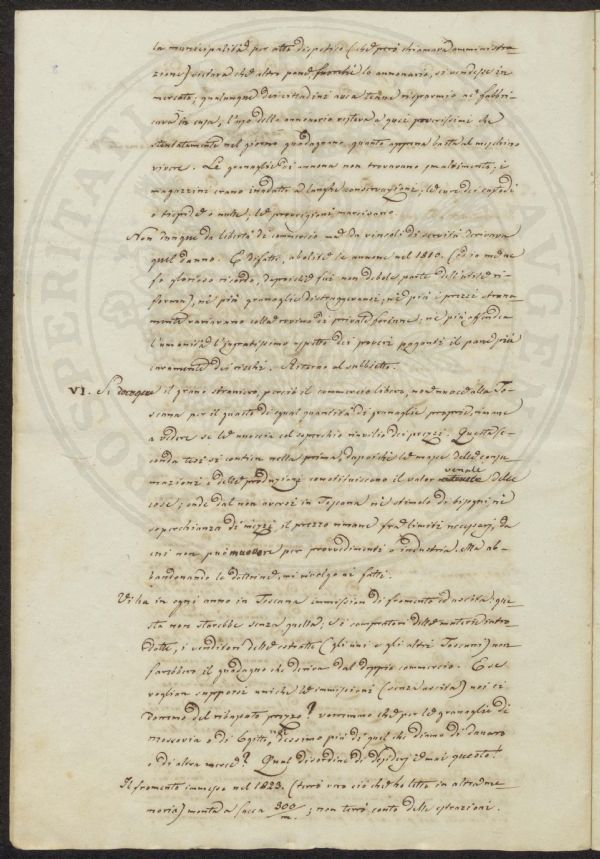 la municipalità, per atto dispotico (che però chiamava amministra-
zione) vietava che altro pane, fuorchè lo annonario, si vendesse in
mercato; qualunque dei cittadini non tenue risparmio ne fabbri-
cava in casa, l'uso della annonario restava a quei poverissimi che
stentatamente nel giorno guadagnano quanto appena basta al meschino
vivere. Le granaglie di annona non trovavano smaltimento; i
magazzini erano inadatti a lunghe conservazione; le cure dei custodi
o tiepide o nulle; le provvigioni marcivano.
Non dunque da libertà di commercio ma da vincoli di servitù derivava
quel danno. E difatti, abolite le annone nel 1810. (ed io me ne
fo glorioso ricordo, daproichè fui non debole parte dell'utile ri-
forma), nè più granaglie distruggevansi, nè più i prezzi strana-
mente variavano colla rovina di private fortune; nè più offendea
l'umanità l'ingratissimo aspetto dei poveri paganti il pane più
caramente dei ricchi. Ritorno al subbietto.
VI. Se dunque il grano straniero, perciò il commercio libero, non nuoce alla To-
scana per il guasto di equal quantità di granaglie proprie, rimane
a vedere se le nuoccia col soperchio rinvilio dei prezzi. Questa se-
conda tesi si contien nella prima, dapoichè le masse delle consu-
mazioni e delle produzioni constituiscono il valor venale delle
cose; onde dal non aversi in Toscana nè stimolo di bisogni, nè
soperchianza di mezzi il prezzo rimane fra limiti necessarj, da
cui non può muovere per provvedimenti o industria. Ma ab-
bandonando le dottrine, mi rivolgo ai fatti.
Vi ha in ogni anno in Toscana immission di fromento ed uscita: que-
sta non starebbe senza quella, se i compratori delle materie intro-
dotte, i venditori delle estratte (gli uni e gli altri Toscani) non
farebbero il guadagno che deriva dal doppio commercio. E se
voglion supporsi uniche le immissioni (senza uscita) noi ci
dorremo del ribassato prezzo? vorremmo che per le granaglie di
Moscovia o di Egitto, si dessimo più di quel che diamo di danaro
o di altra merce? Qual disordine di desiderj è mai questo!
Il fromento immesso nel 1823. (terrò vero ciò che ho letto in altra me-
moria) monta a sacca 300/m. ; non terrò conto delle estrazioni.